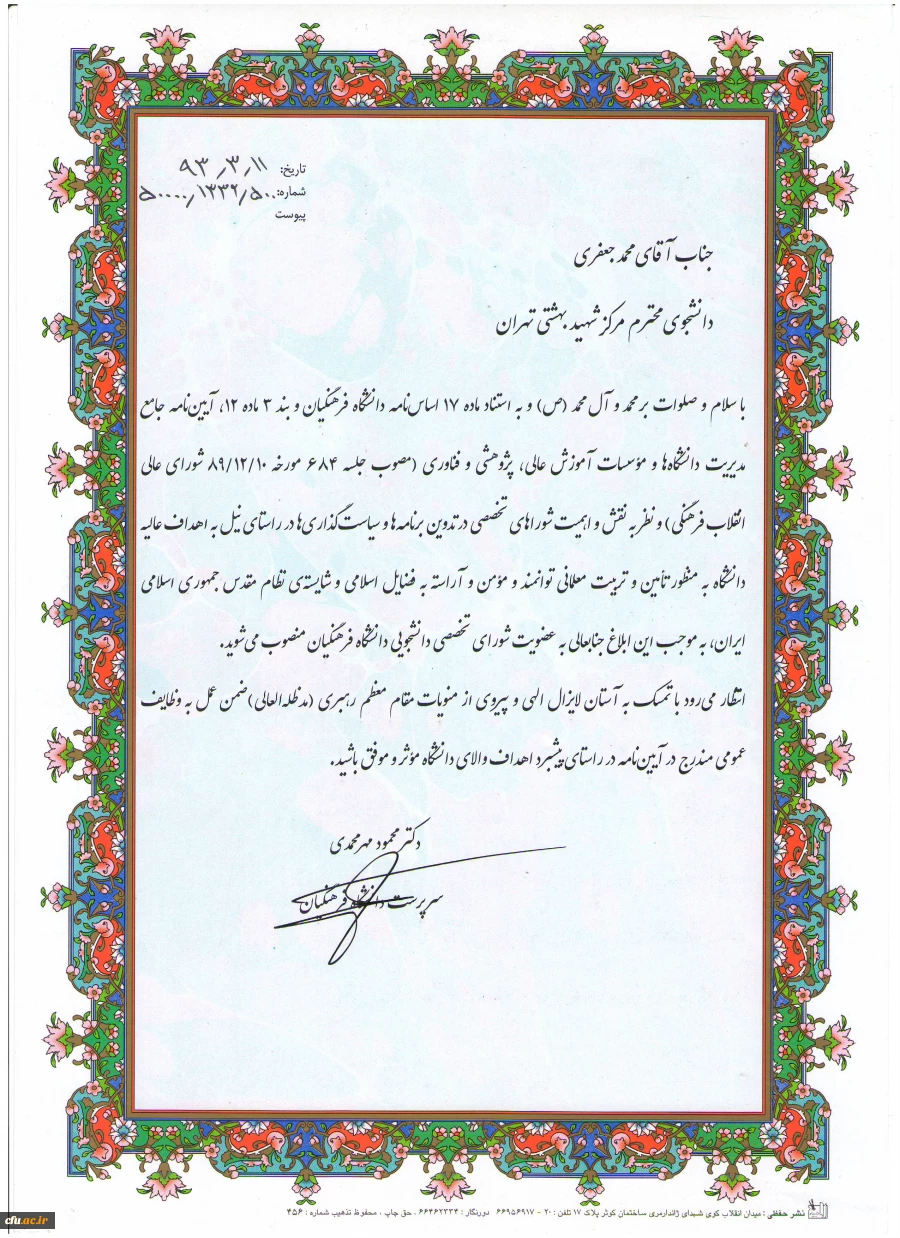 تاریخ: ۹۳٫۳٫۱۱
شماره: ۵۰۰۰۰٫۱۳۳۲٫۵۰۰
پیوست
جناب آقای محمد جعفری
دانشجوی محترم مرکز شهید بهشتی تهران
با سلام و صلوات بر محمد و آل محمد (ص) و به استناد ماده ۱۷ اساس‌نامه دانشگاه فرهنگیان و بند ۳ ماده ۱۲، آیین‌نامه جامع
مدیریت دانشگاه‌ها و مؤسسات آموزش عالی، پژوهشی و فناوری (مصوب جلسه ۶۸۴ مورخه ۸۹/۱۲/۱۰ شورای عالی
انقلاب فرهنگی) و نظر به نقش و اهمیت شوراهای تخصصی در تدوین برنامه‌ها و سیاست‌گذاری‌ها در راستای نیل به اهداف عالیه
دانشگاه به منظور تأمین و تربیت معلمانی توانمند و مؤمن و آراسته به فضایل اسلامی و شایسته‌ی نظام مقدس جمهوری اسلامی
ایران، به موجب این ابلاغ جنابعالی به عضویت شورای تخصصی دانشجویی دانشگاه فرهنگیان منصوب می‌شوید.
انتظار می‌رود با تمسک به آستان لایزال الهی و پیروی از منویات مقام معظم رهبری (مدظله‌العالی) ضمن عمل به وظایف
عمومی مندرج در آیین‌نامه در راستای پیشبرد اهداف والای دانشگاه مؤثر و موفق باشید.
دکتر محمود مهرمحمدی
سرپرست دانشگاه فرهنگیان
نشر حفظی: میدان انقلاب کوی شهدای ژاندارمری ساختمان کوثر پلاک ۱۷ تلفن: ۲۰ - ۶۶۹۵۶۹۱۷ دورنگار: ۶۶۴۶۲۳۳۴، حق چاپ، محفوظ تذهیب شماره: ۴۵۶
cfu.ac.ir